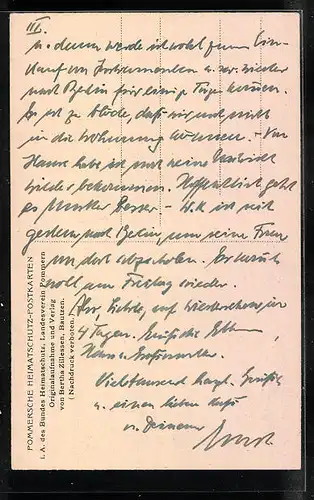 III.
u. dann werde ich wohl zum Ein-
kauf von Instrumenten u. s.w. wieder
nach Berlin für einige Tage kommen.
Es ist zu blöde, daß wir uns nicht
in die Wohnung können. – Von
Hans habe ich noch keine Nachricht
wieder bekommen. Hoffentlich geht
es Mutter besser – H.K ist seit
gestern nach Berlin, um seine Frau
von dort abzuholen. Er
wohl am Freitag wieder.
Aber, Liebste, auf Wiedersehen in
4 Tagen. Grüße die Eltern,
Hans u. Großmutter.
Vieltausend herzl. Grüße
u. einen lieben Kuß
v. Deinem
POMMERSCHE HEIMATSCHUTZ-POSTKARTEN
i. A. des Bundes Heimatschutz, Landesverein Pommern
Originalaufnahme und Verlag
von Bertha Zillessen, Bautzen.
(Nachdruck verboten.)